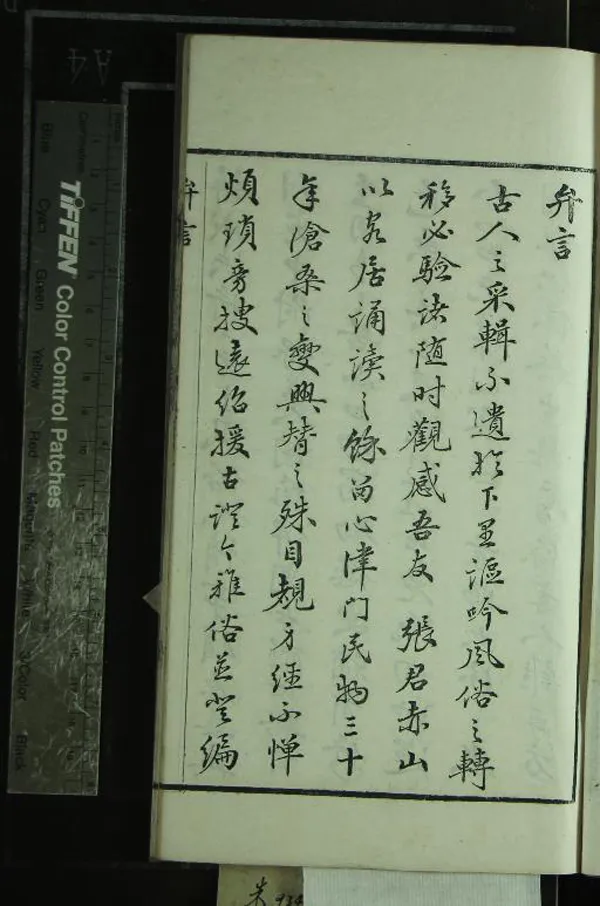 弁言
古人之采輯不遺於下里謳吟風俗之轉
移必驗諸随时觀感吾友 張君赤山
以家居誦讀之餘留心津门民物三十
年滄桑之變興替之殊目覩身經不惮
煩瑣旁搜遠紹援古證今雅俗並登編
弁言
A4
TIFFEN Color Control Patches
Centimetres
Blue
Cyan
Green
Yellow
Red
Magenta
White
3/Color
Black
朱934